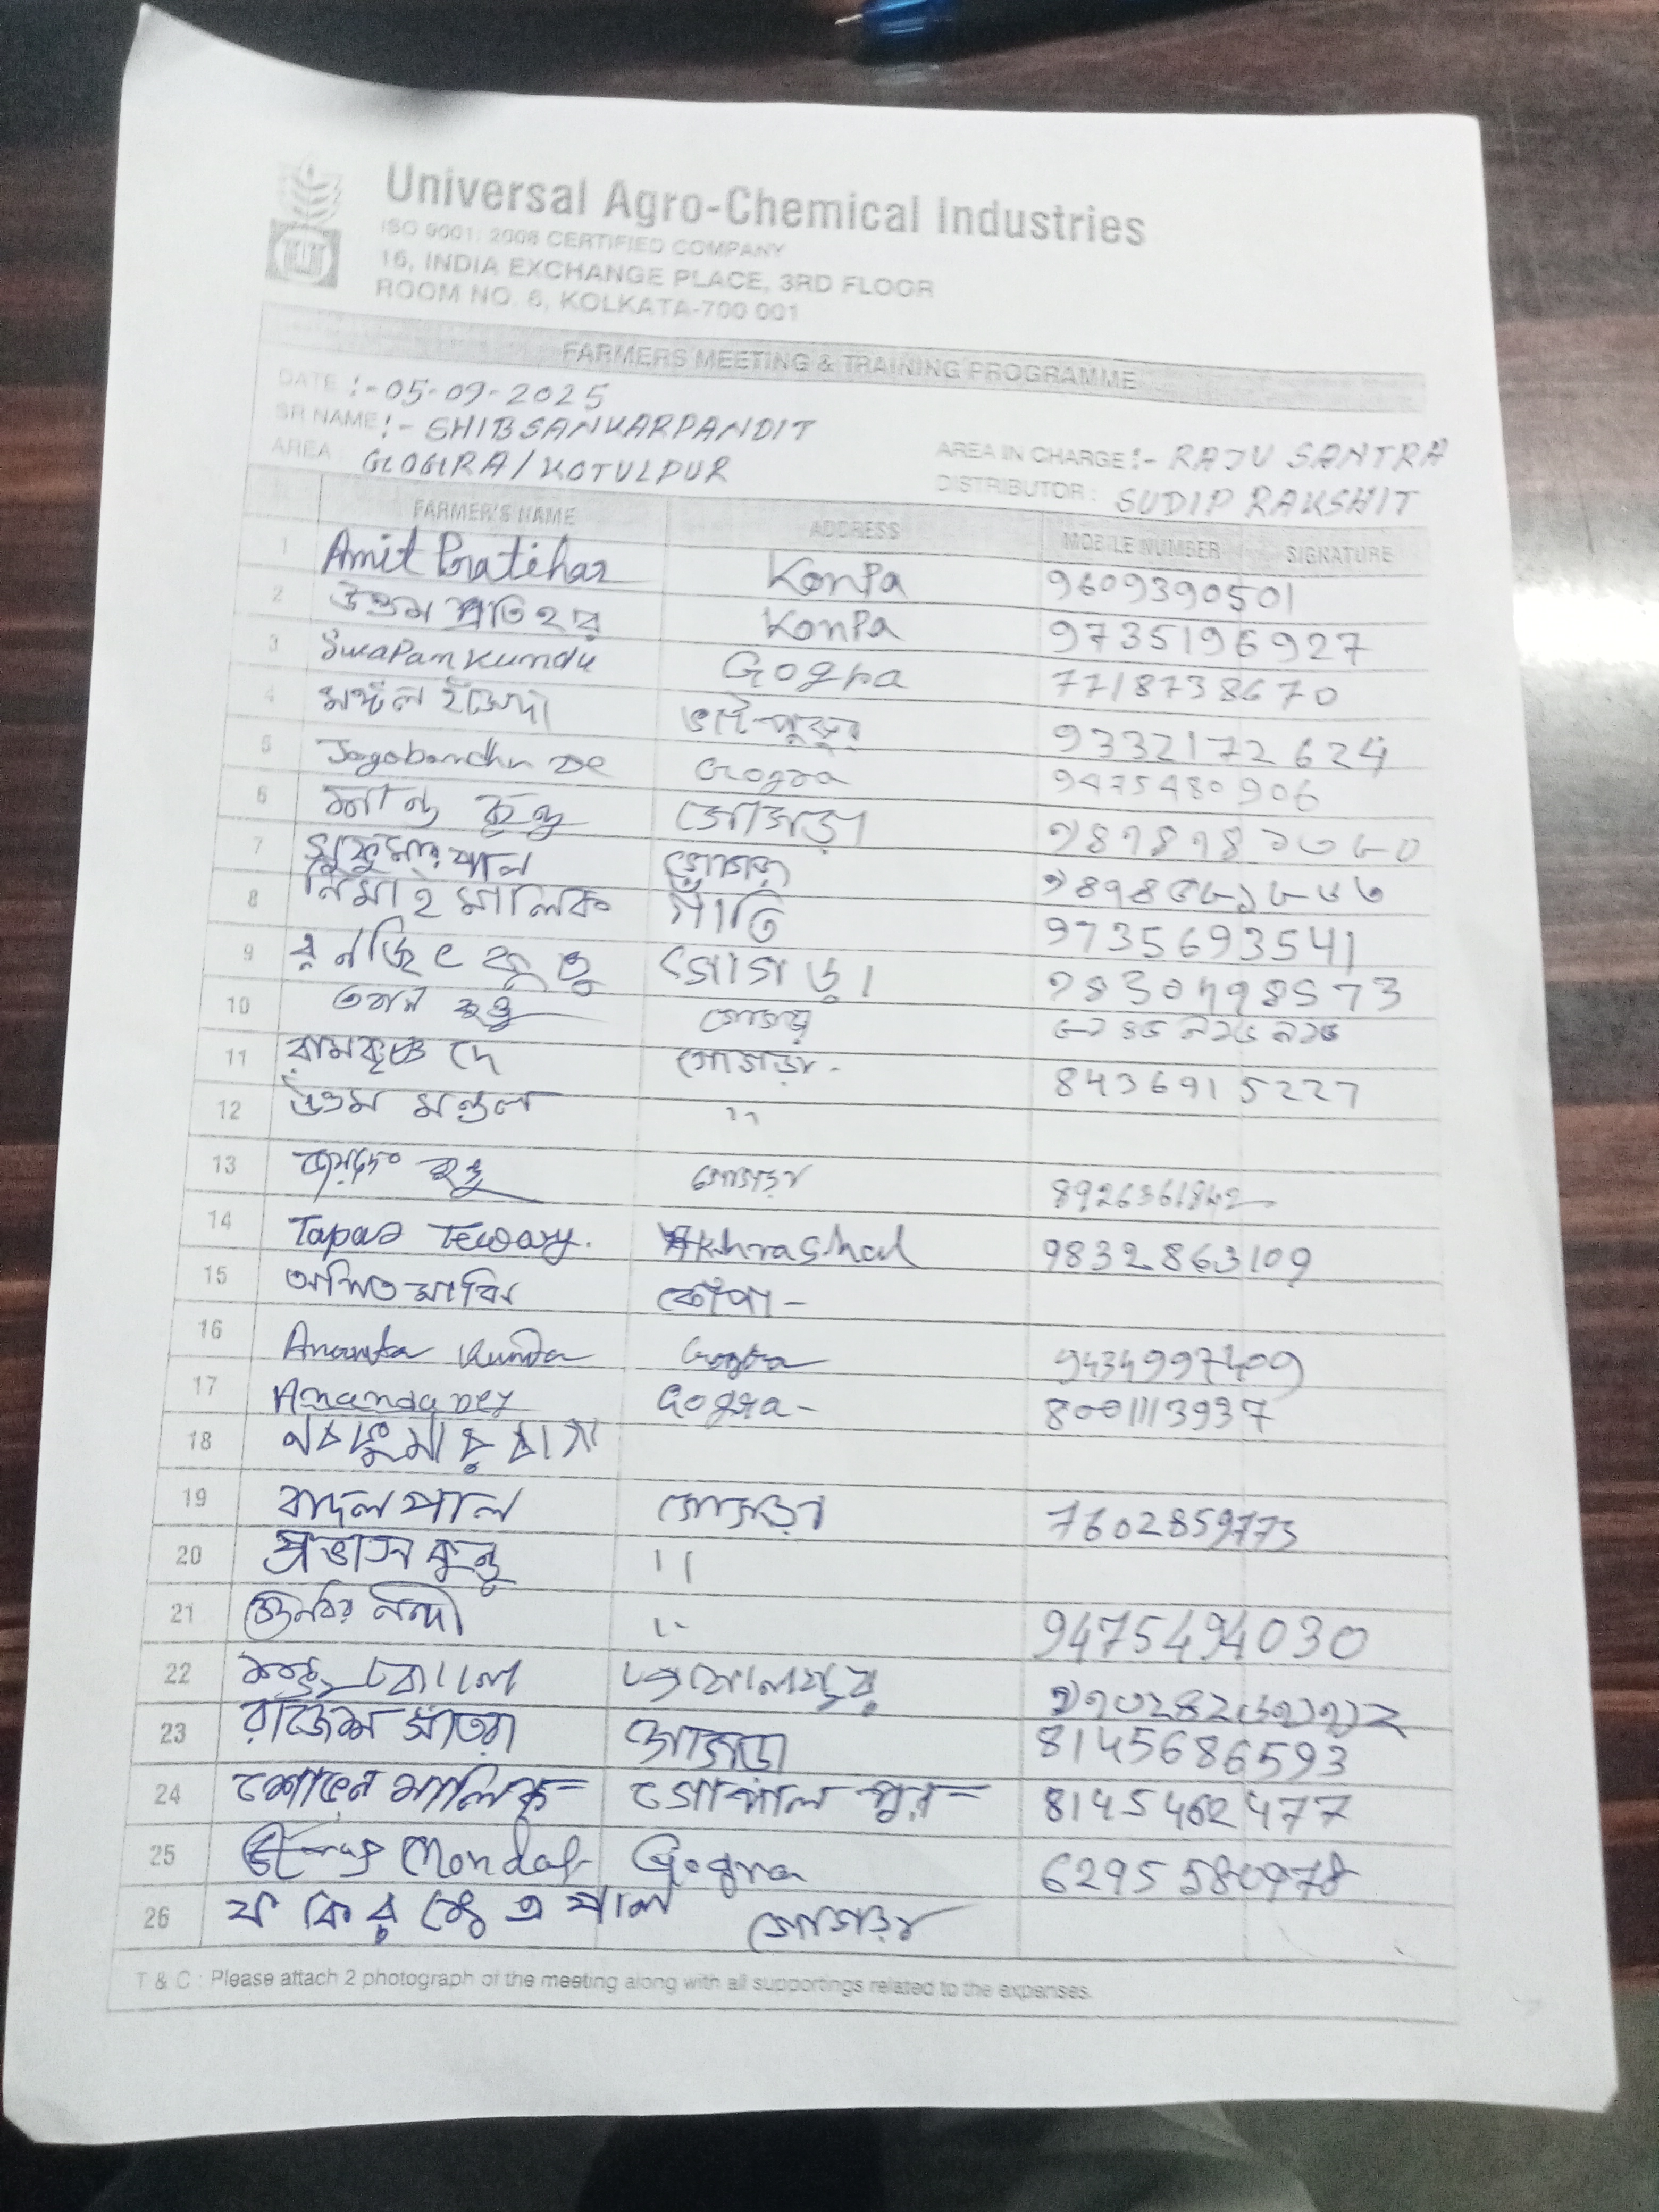 Universal Agro-Chemical Industries
ISO 9001: 2008 CERTIFIED COMPANY
16, INDIA EXCHANGE PLACE, 3RD FLOOR
ROOM NO. 6, KOLKATA-700 001
FARMERS MEETING & TRAINING PROGRAMME
DATE :-05-09-2025
SR NAME :- SHIBSANKARPANDIT
AREA IN CHARGE :- RAJU SANTRA
AREA GOGRA/KOTULPUR
DISTRIBUTOR: SUDIP RAKSHIT
FARMER'S NAME ADDRESS MOBILE NUMBER SIGNATURE
1 Amit Pratihar Konpa 9609390501
2 উত্তম প্রতিহর KonPa 9735196927
3 SwaPan Kundu Gogra 7718738670
4 9332172624
5 Jagabandhu De Gogra 9475480906
6 কুন্ডু গোগড়া
7 সুকুমার পাল গোগড়া
8 নিমাই মালিক 9735693541
9 রনজিৎ কুন্ডু গোগড়া
10 কুন্ডু গোগড়া
11 রামকৃষ্ণ দে গোগড়া - 8436915227
12 উত্তম মন্ডল "
13 কুন্ডু গোগড়া
14 Tapas Tewary. Akhrashal 9832863109
15 অসিত মাঝি কোঁপা -
16 Ananta Kundu Gogra 9434997409
17 Ananda Dey Gogra - 8001113937
18 নবকুমার বাগ
19 বাদল পাল গোগড়া 7602859773
20 প্রভাস কুন্ডু "
21 নন্দী " 9475494030
22
23 রাজেশ সাঁতরা গোগড়া 8145686593
24 শোভন মালিক গোপালপুর 8145462477
25 Mondal Gogra 6295580978
26 ফকির পাল গোগড়া
T & C : Please attach 2 photograph of the meeting along with all supportings related to the expenses.